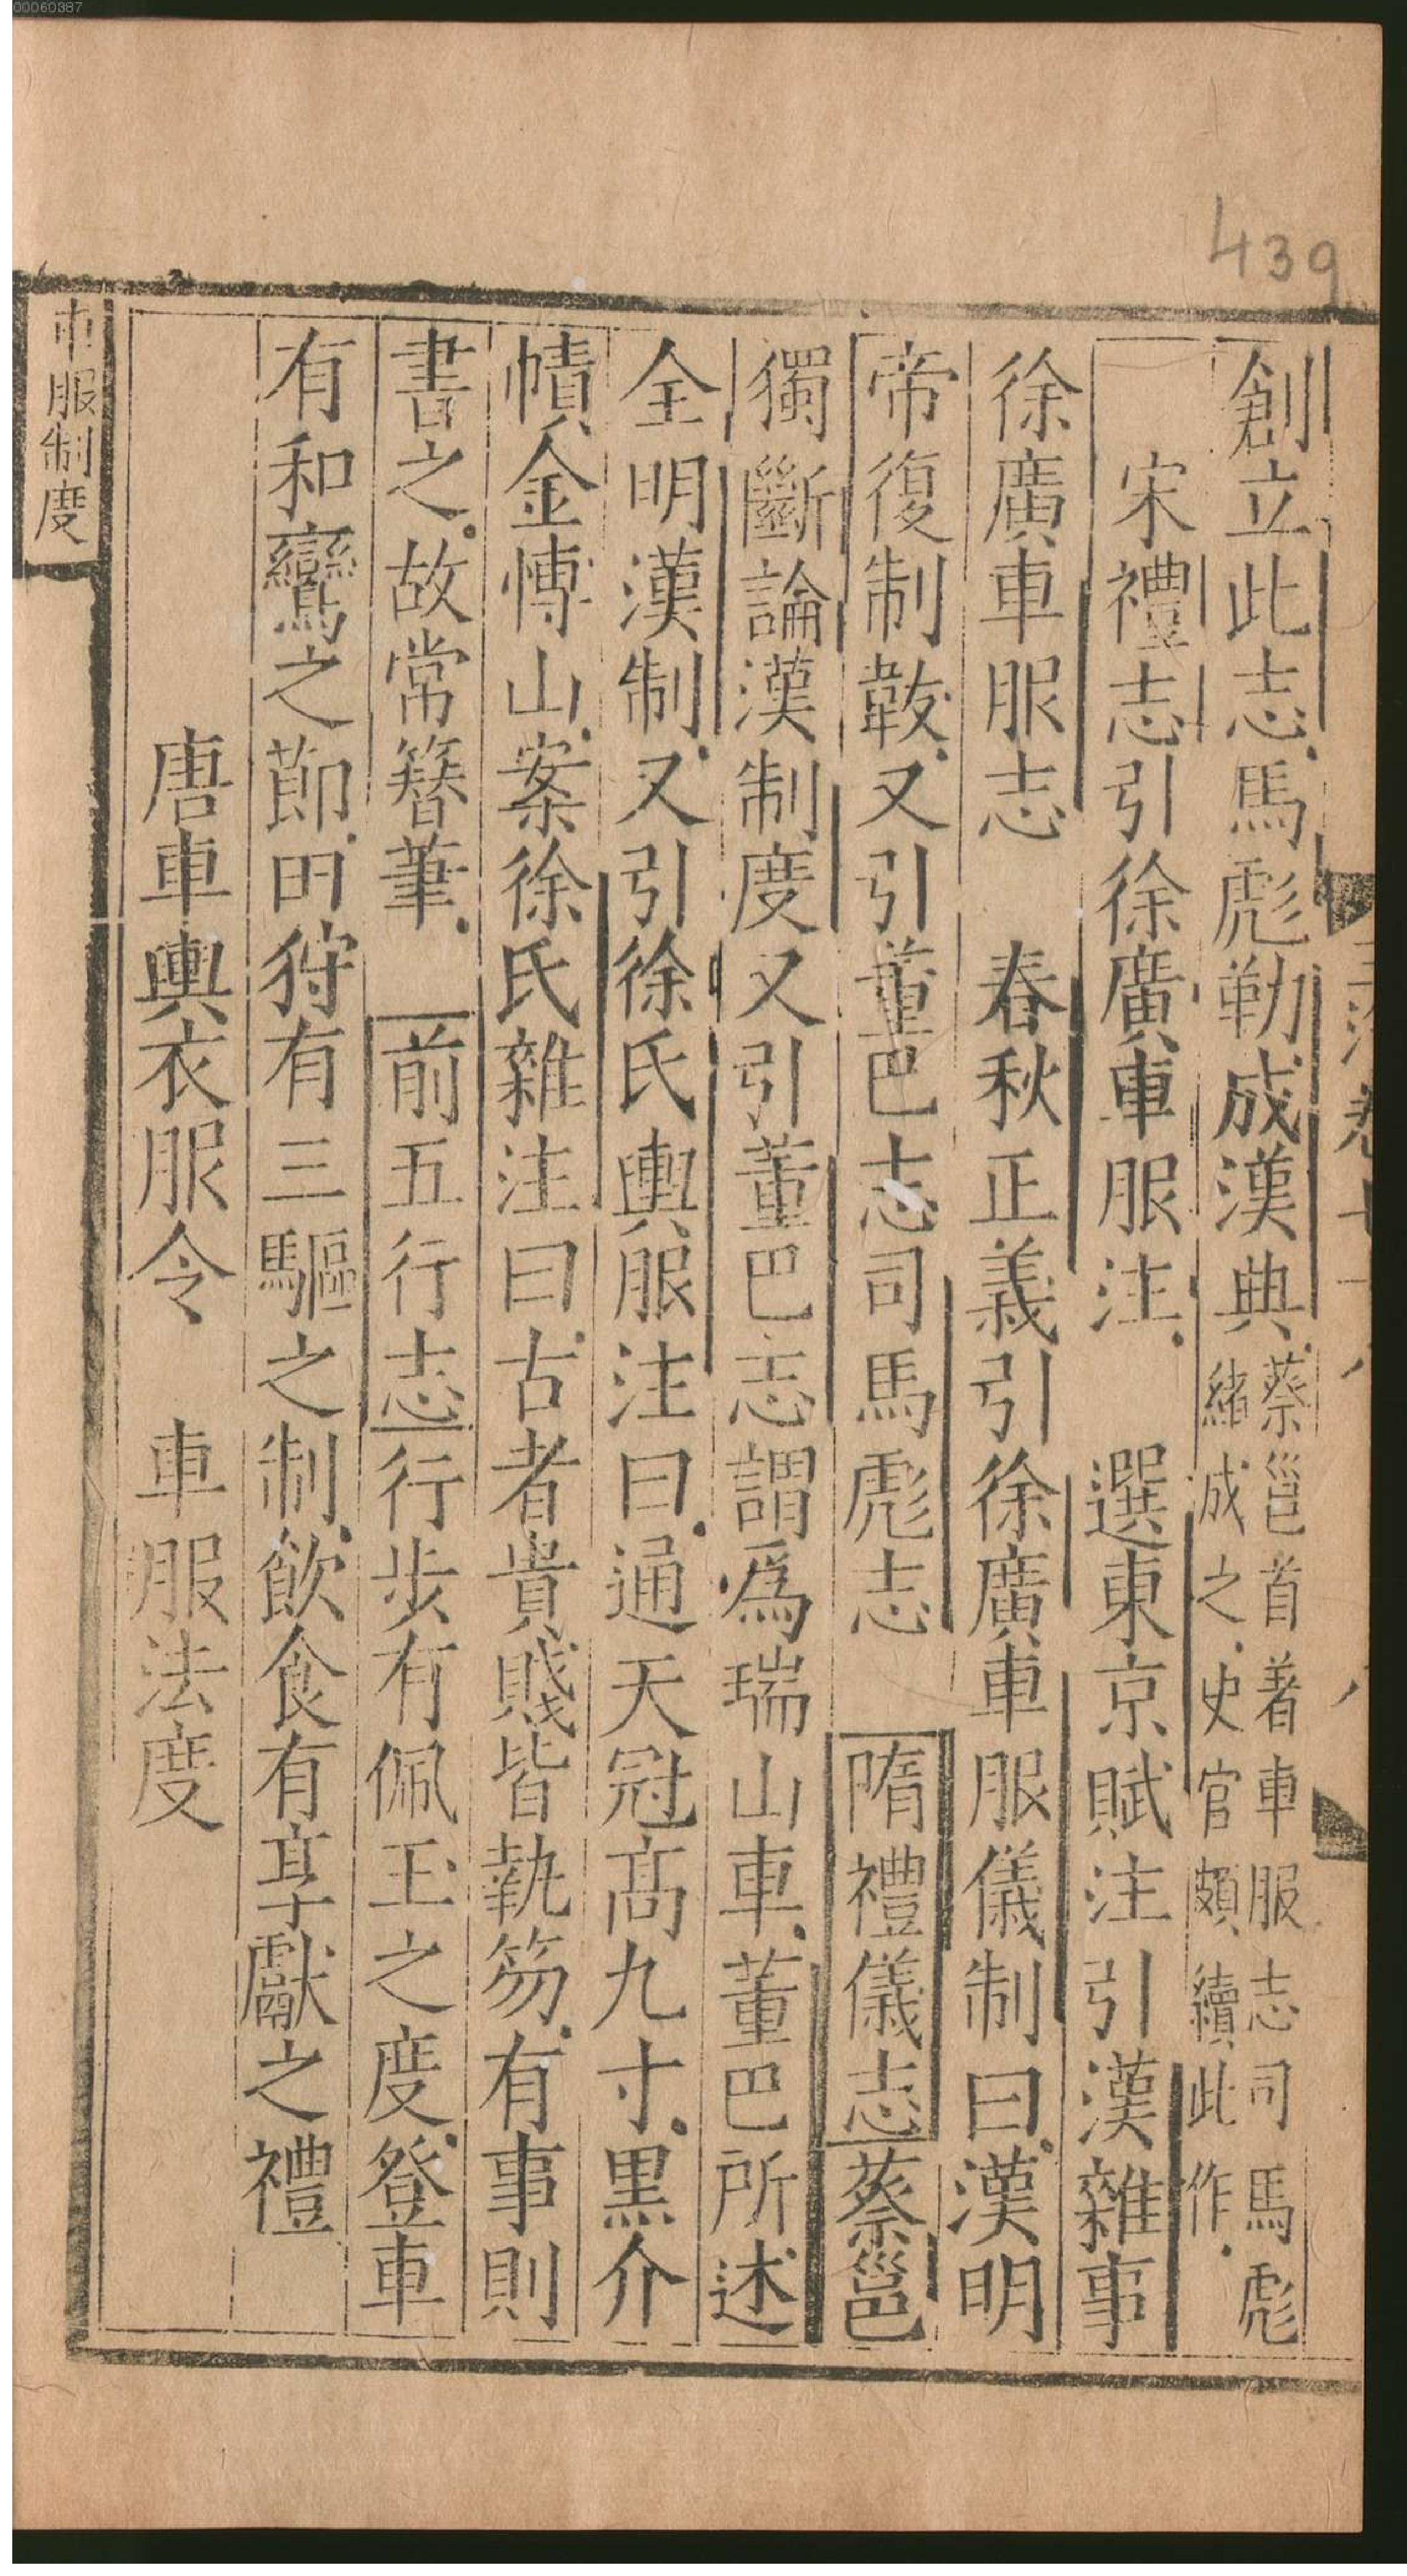 00060387
439
創立此志馬彪勒成漢典蔡邕首著車服志司馬彪
緒成之史官頗續此作
宋禮志引徐廣車服注　選東京賦注引漢雜事
徐廣車服志　春秋正義引徐廣車服儀制曰漢明
帝復制韍又引董巴志司馬彪志　隋禮儀志蔡邕
獨斷論漢制度又引董巴志謂爲瑞山車董巴所述
全明漢制又引徐氏輿服注曰通天冠高九寸黒介
幘金博山案徐氏雜注曰古者貴賤皆執笏有事則
書之故常簪筆　前五行志行步有佩玉之度登車
有和鸞之節田狩有三驅之制飲食有享獻之禮
唐車輿衣服令　車服法度
車服制度